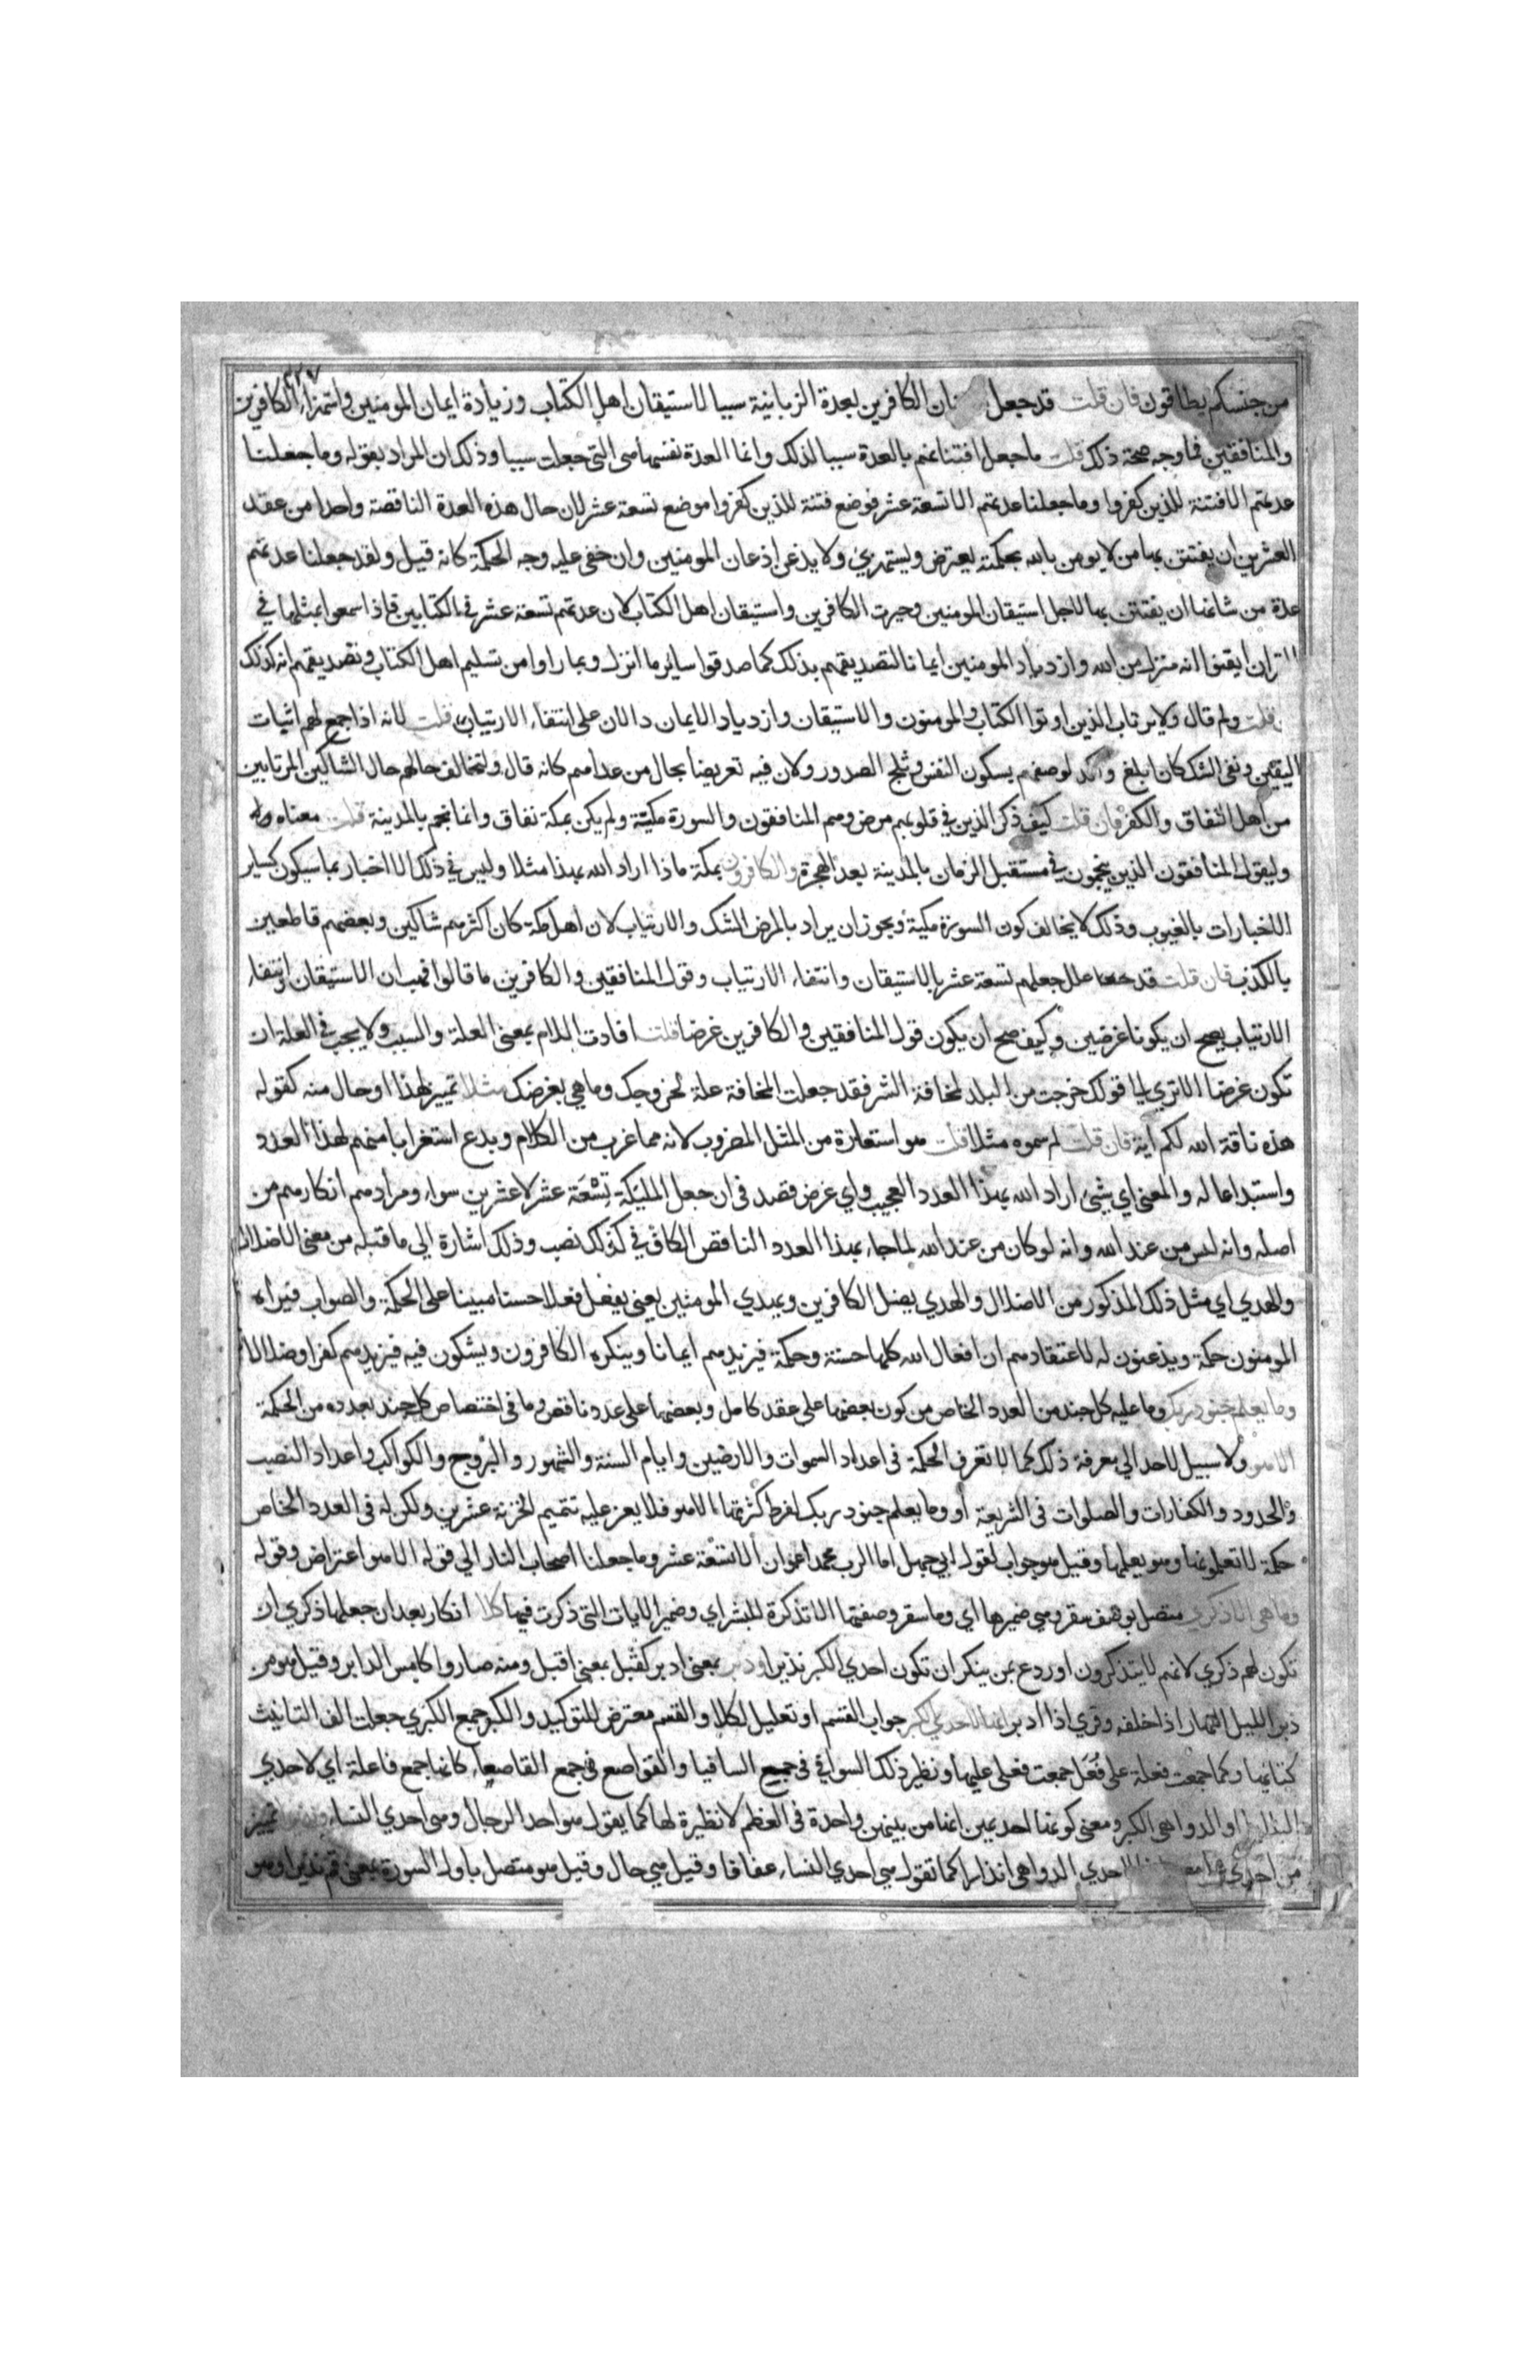 من جنسكم يطاقون فان قلت قد جعل الكافرين بعدة الزبانية سببا لاستيقان اهل الكتاب وزيادة ايمان المومنين واستهزاء الكافرين
والمنافقين فما وجه صحة ذلك قلت ما جعل افتتانهم بالعدة سببا لذلك وانما العدة نفسها هي التي جعلت سببا وذلك ان المراد بقوله وما جعلنا
عدتهم الا فتنة للذين كفروا وما جعلنا عدتهم الا تسعة عشر فوضع فتنة للذين كفروا موضع تسعة عشر لان حال هذه العدة الناقصة واحدا من عقد
العشرين ان يفتتن بها من لا يومن بالله بحكمته يعترض ويستهزئ ولا يذعن اذعان المومنين وان خفي عليه وجه الحكمة كانه قيل ولقد جعلنا عدتهم
عدة من شانها ان يفتتن بها لاجل استيقان المومنين وحيرت الكافرين واستيقان اهل الكتاب لان عدتهم تسعة عشر في الكتابين فاذا سمعوا بمثلها في
ايقنوا انه منزل من الله وازدياد المومنين ايمانا لتصديقهم بذلك كما صدقوا ساير ما انزل وبما راوا من تسليم اهل الكتاب وتصديقهم انه كذلك
قلت ولم قال ولا يرتاب الذين اوتوا الكتاب والمومنون والاستيقان وازدياد الايمان دالان على انتفاء الارتياب قلت لانه اذا جمع لهم اثبات
اليقين ونفي الشك كان ابلغ واكد لوصفهم بسكون النفس وثلج الصدور ولان فيه تعريضا بحال من عداهم كانه قال ولتخالف حالهم حال الشاكين المرتابين
من اهل النفاق والكفر فان قلت كيف ذكر الذين في قلوبهم مرض وهم المنافقون والسورة مكية ولم يكن بمكة نفاق وانما نجم بالمدينة قلت معناه
وليقول المنافقون الذين ينجمون في مستقبل الزمان بالمدينة بعد الهجرة والكافرون بمكة ماذا اراد الله بهذا مثلا وليس في ذلك الا اخبار بما سيكون كساير
الاخبارات بالغيوب وذلك لا يخالف كون السورة مكية ويجوز ان يراد بالمرض الشك والارتياب لان اهل مكة كان اكثرهم شاكين وبعضهم قاطعين
بالكذب فان قلت قد علل جعلهم تسعة عشر بالاستيقان وانتفاء الارتياب وقول المنافقين والكافرين ما قالوا فهب ان الاستيقان وانتفاء
الارتياب يصح ان يكونا غرضين وكيف صح ان يكون قول المنافقين والكافرين غرضا قلت افادت اللام بمعنى العلة والسبب ولا يجب في العلة ان
تكون غرضا الا تري الي قولك خرجت من البلد لمخافة الشر فقد جعلت المخافة علة لخروجك وما هي بغرضك مثلا تمييز لهذا او حال منه كقوله
هذه ناقة الله لكم اية فان قلت لم سموه مثلا قلت هو استعارة من المثل المضروب لانه مما غرب من الكلام وبدع استغرابا منهم لهذا العدد
واستبداعا له والمعنى اي شيء اراد الله بهذا العدد العجيب واي غرض قصد في ان جعل المليكة تسعة عشر لا عشرين سواء ومرادهم انكارهم من
اصله وانه ليس من عند الله وانه لو كان من عند الله لما جاء بهذا العدد الناقص الكاف في كذلك نصب وذلك اشارة الي ما قبله من معنى الاضلال
والهدي اي مثل ذلك المذكور من الاضلال والهدي يضل الكافرين ويهدي المومنين يعني يفعل فعلا حسنا مبينا على الحكمة والصواب فيراه
المومنون حكمة ويذعنون له لاعتقادهم ان افعال الله كلها حسنة وحكمة فيزيدهم ايمانا وينكره الكافرون ويشكون فيه فيزيدهم كفرا وضلالا
وما يعلم جنود ربك وما عليه كل جند من العدد الخاص من كون بعضها على عقد كامل وبعضها على عدد ناقص وما في اختصاص كل جند بعدده من الحكمة
الا هو ولا سبيل لاحد الي معرفة ذلك كما لا تعرف الحكمة في اعداد السموات والارضين وايام السنة والشهور والبروج والكواكب واعداد النصب
والحدود والكفارات والصلوات في الشريعة او وما يعلم جنود ربك لفرط كثرتها الا هو فلا يعز عليه تتميم الخزنة عشرين ولكن له في العدد الخاص
حكمة لا تعلمونها وهو يعلمها وقيل هو جواب لقول ابي جهل اما لرب محمد اعوان الا تسعة عشر وما جعلنا اصحاب النار الي قوله الا هو اعتراض وقوله
وما هي الا ذكري متصل بوصف سقر وهي ضميرها اي وما سقر وصفتها الا تذكرة للبشر اي وضمير الايات التي ذكرت فيها كلا انكار بعد ان جعلها ذكري ان
تكون لهم ذكري لانهم لا يتذكرون او ردع لمن ينكر ان تكون احدي الكبر نذيرا ودبر بمعنى ادبر كقبل بمعنى اقبل ومنه صاروا كامس الدابر وقيل هو من
دبر الليل النهار اذا خلفه وقري اذا ادبر انها لاحدي الكبر جواب القسم او تعليل لكلا والقسم معترض للتوكيد والكبر جمع الكبري جعلت الف التانيث
كتائها وكما جمعت فعلة على فُعَل جمعت فعلى عليها ونظير ذلك السوافي في جميع السافيا والقواصع في جمع القاصعاء كانها جمع فاعلة اي لاحدي
البلايا او الدواهي الكبر ومعنى كونها احديهن انها من بينهن واحدة في العظم لا نظيرة لها كما يقول هو احد الرجال وهي احدي النساء تمييز
من احدي احدي الدواهي انذارا كما تقول هي احدي النساء عفافا وقيل هي حال وقيل هو متصل باول السورة بمعنى قم نذيرا وهو